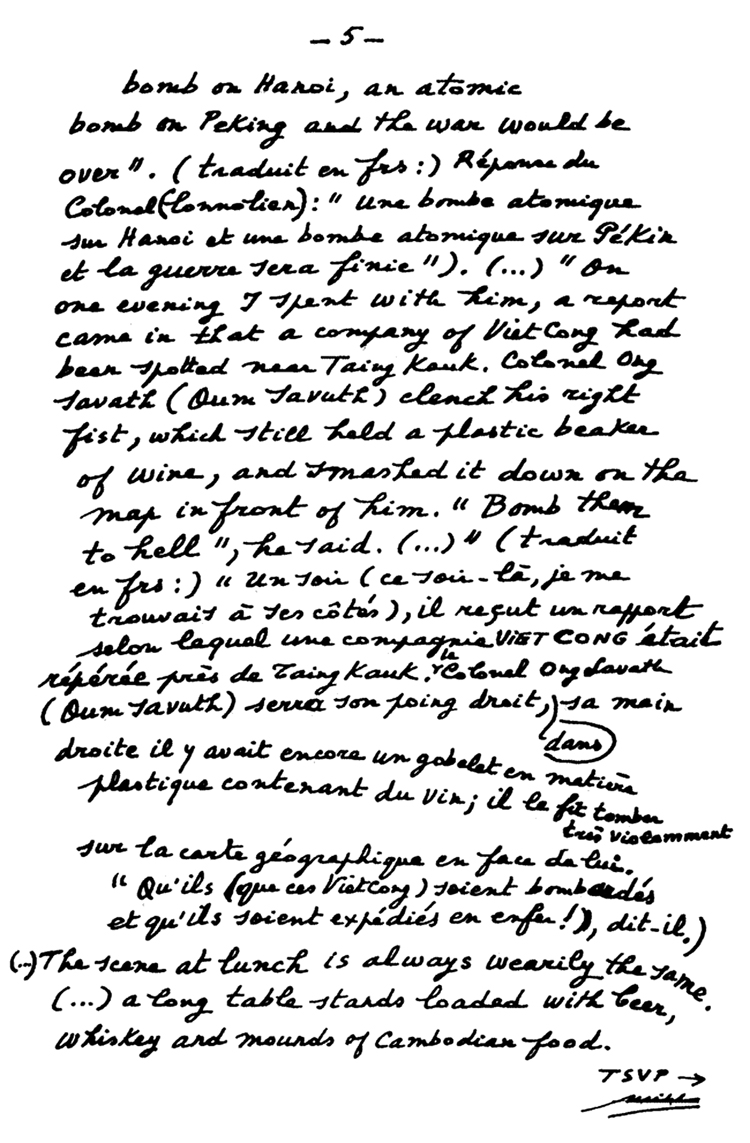 – 5 –
bomb on Hanoi, an atomic
bomb on Peking and the war would be
over". (traduit en frs:) Réponse du
Colonel (Lonnolien): " Une bombe atomique
sur Hanoi et une bombe atomique sur Pékin
et la guerre sera finie"). (...) " On
one evening I spent with him, a report
came in that a company of VietCong had
been spotted near Taing Kauk. Colonel Ong
Savath (Oum Savuth) clench his right
fist, which still held a plastic beaker
of wine, and smashed it down on the
map in front of him. " Bomb them
to hell", he said. (...)" (traduit
en frs:) " Un soir (ce soir-là, je me
trouvais à ses côtés), il reçut un rapport
selon laquel une compagnie VIET CONG était
répérée près de Taing Kauk. le Colonel Ong Savath
(Oum Savuth) serra son poing droit, dans sa main
droite il y avait encore un gobelet en matière
plastique contenant du vin; il le fit tomber
très violemment
sur la carte géographique en face de lui.
" Qu'ils (que ces VietCong) soient bombardés
et qu'ils soient expédiés en enfer!), dit-il.)
(...) The scene at lunch is always wearily the same.
(...) a long table stands loaded with beer,
whiskey and mounds of Cambodian food.
TSVP →